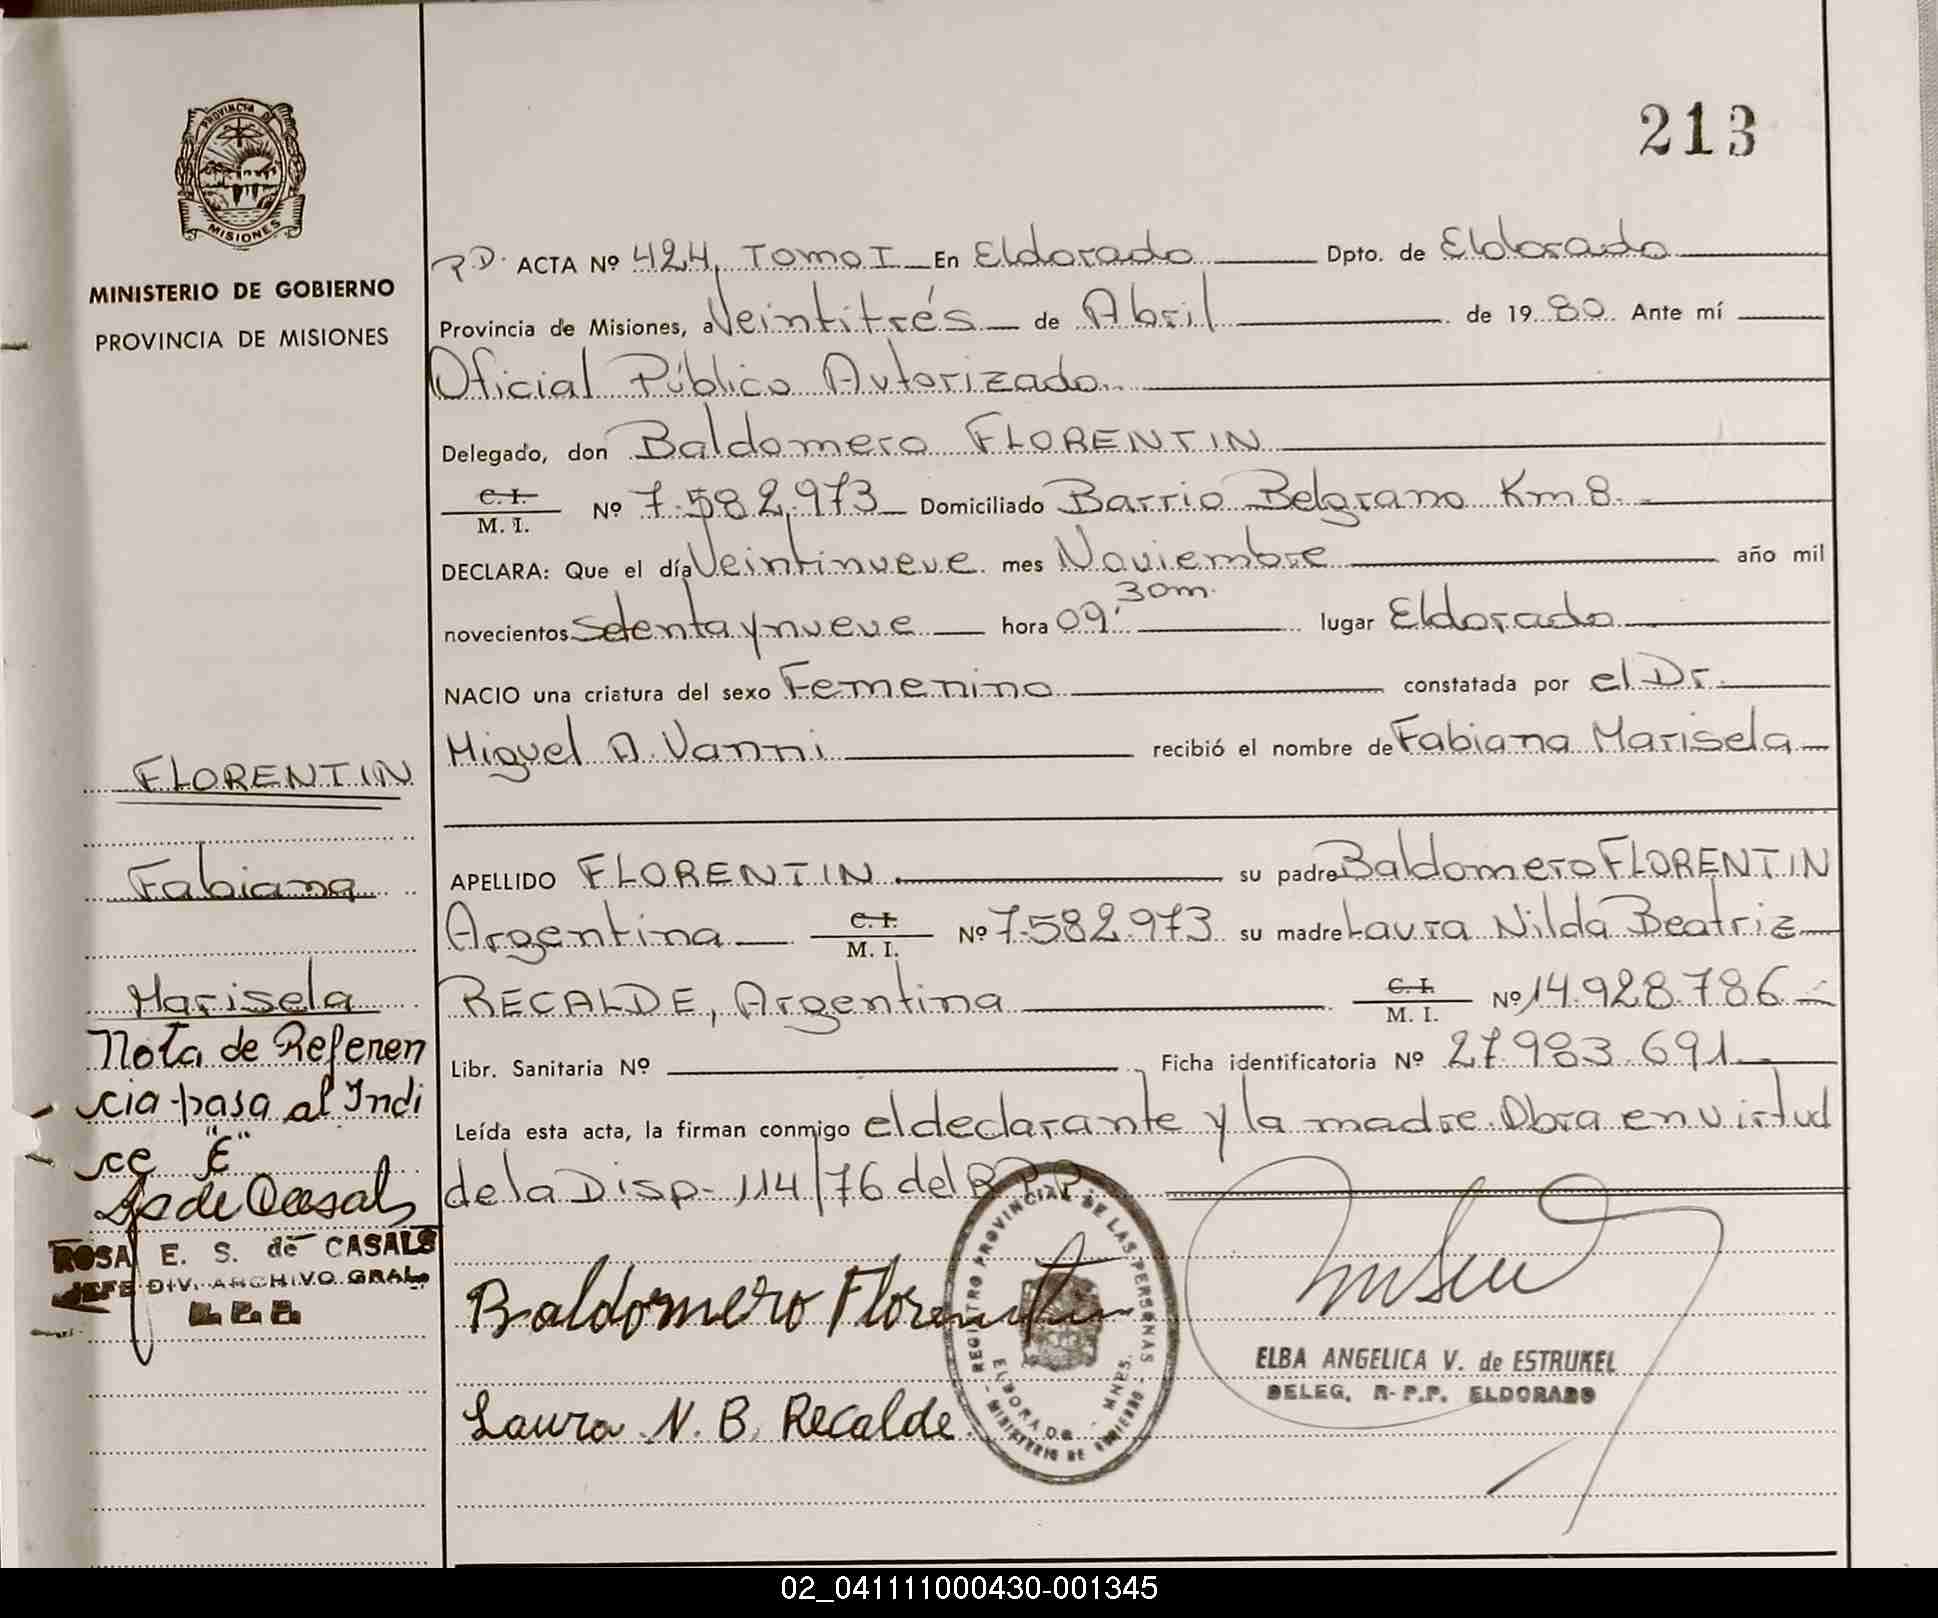 213
PROVINCIA DE
MISIONES
MINISTERIO DE GOBIERNO
PROVINCIA DE MISIONES
P.D. ACTA Nº 424, TOMO I En Eldorado Dpto. de Eldorado
Provincia de Misiones, a Veintitrés de Abril de 1980. Ante mí
Oficial Público Autorizado
Delegado, don Baldomero FLORENTIN
C. I.
M. I. Nº 7.582.973 Domiciliado Barrio Belgrano Km 8.
DECLARA: Que el día Veintinueve mes Noviembre año mil
novecientos setenta y nueve hora 09, 30m. lugar Eldorado
NACIO una criatura del sexo Femenino constatada por el Dr.
Miguel A. Vanni recibió el nombre de Fabiana Marisela
APELLIDO FLORENTIN. su padre Baldomero FLORENTIN
Argentina C. I.
M. I. Nº 7.582.973 su madre Laura Nilda Beatriz
RECALDE, Argentina C. I.
M. I. Nº 14.928.786
Libr. Sanitaria Nº Ficha identificatoria Nº 27.983.691
Leída esta acta, la firman conmigo el declarante y la madre. Obra en virtud
de la Disp. 114/76 del R.P.P.
Baldomero Florentin
Laura N. B. Recalde
REGISTRO PROVINCIAL DE LAS PERSONAS
ELDORADO - MNES.
MINISTERIO DE GOBIERNO
ELBA ANGELICA V. de ESTRUKEL
DELEG. R.P.P. ELDORADO
FLORENTIN
Fabiana
Marisela
Nota de Referen
cia pasa al Indi
ce "E"
ROSA E. S. de CASALS
JEFE DIV. ARCHIVO GRAL.
02_041111000430-001345